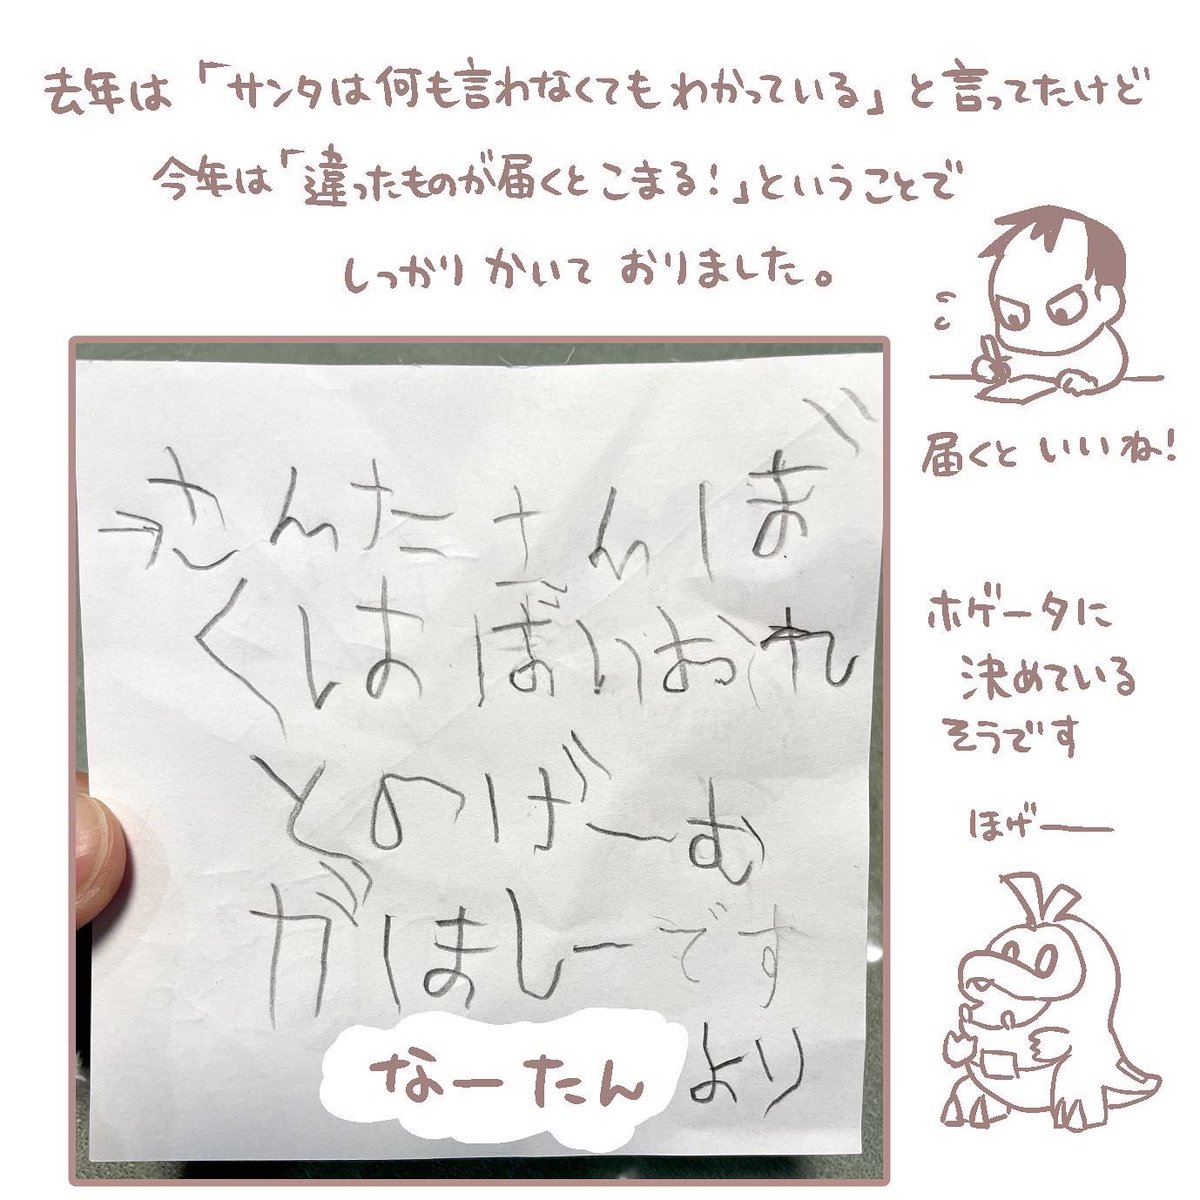 去年は「サンタは何も言わなくてもわかっている」と言ってたけど
今年は「違ったものが届くとこまる！」ということで
しっかりかいておりました。
届くといいね！
さんたさんぼ
くはばいおれ
とのげーむ
がほしーです
なーたんより
ホゲータに
決めている
そうです
ほげー